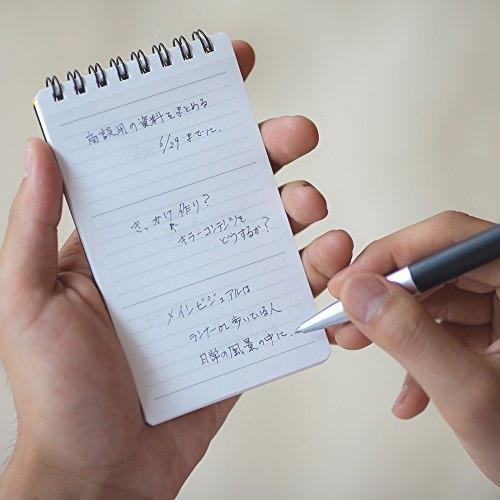 商談用の資料をまとめる
6/29 までに.
きっかけ作り?
キラーコンテンツを
どうするか?
メインビジュアルは
ランナー or 歩いている人
日常の風景の中に.